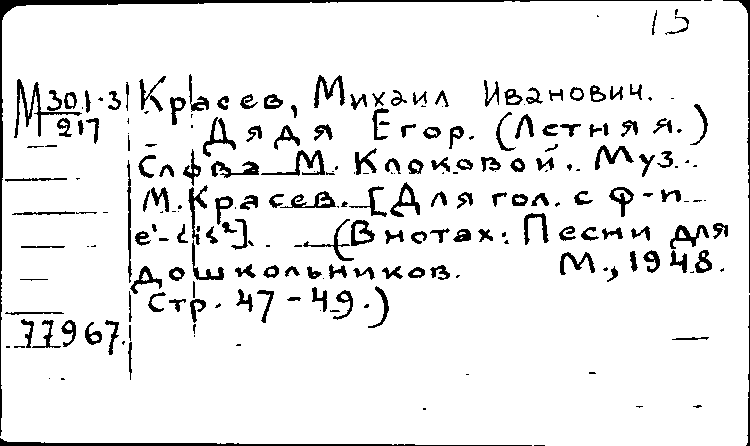 15
М 301-3 Красев, Михаил Иванович.
217 Дядя Егор. (Летняя.)
Слова М. Клоковой. Муз.
М. Красев. [Для гол. с ф-п
e'-cis²]. (В нотах: Песни для
дошкольников. М., 1948.
Стр. 47-49.)
77967.